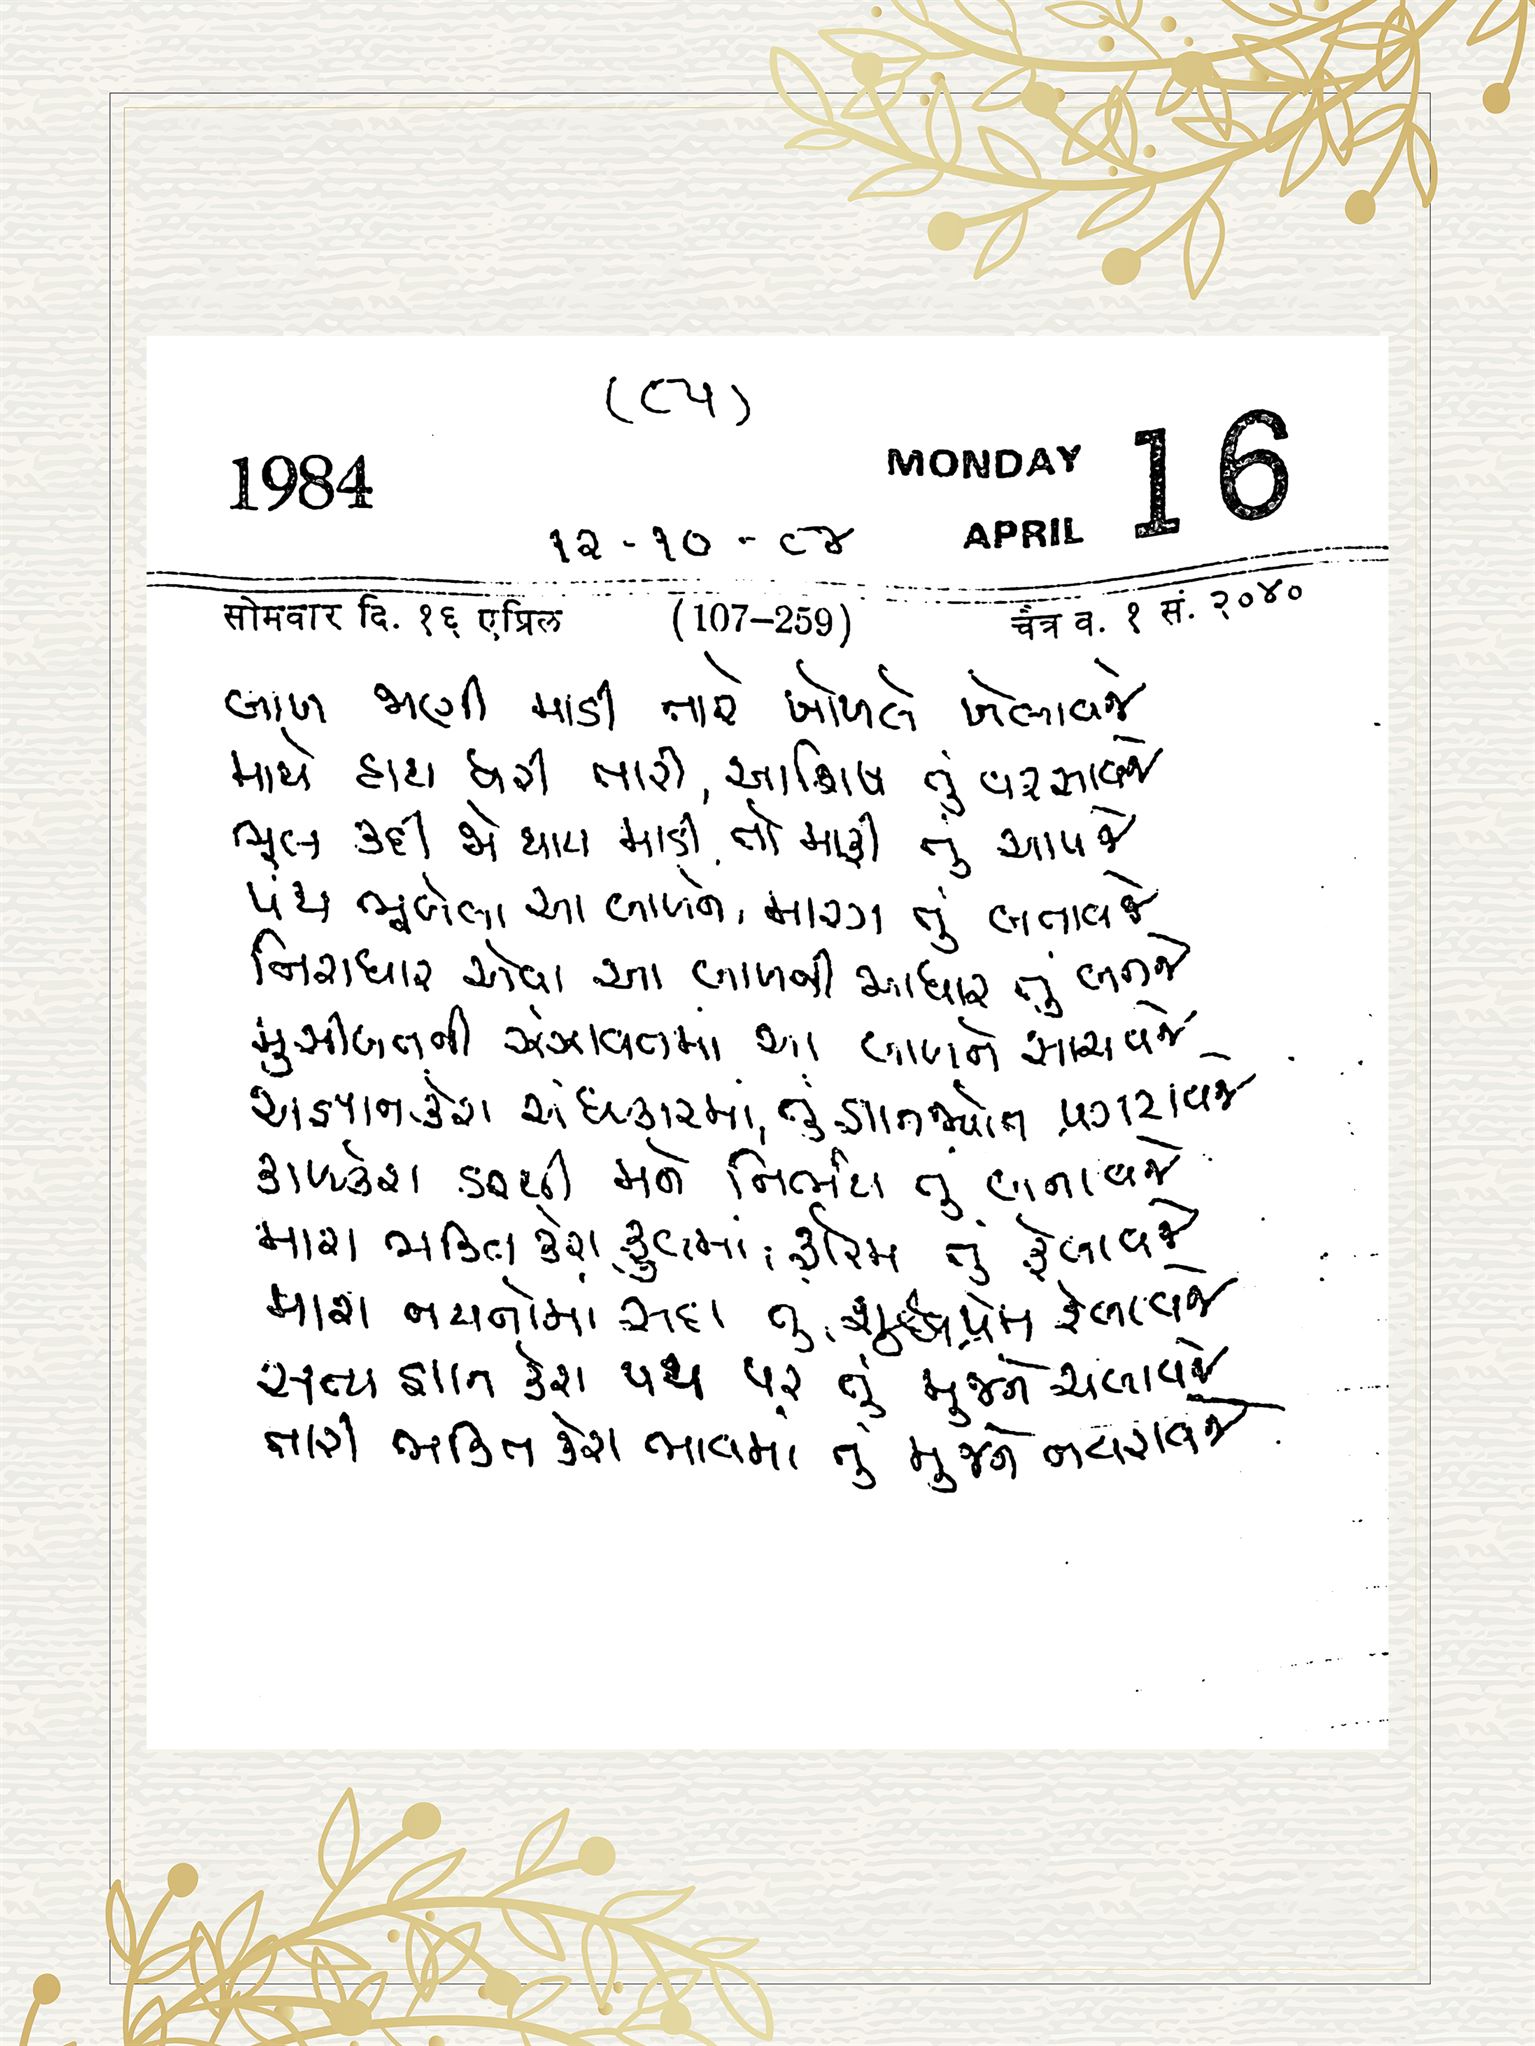 (૮૫)
1984
MONDAY 16
APRIL
૧૨-૧૦-૮૪
सोमवार दि. १६ एप्रिल (107-259) चैत्र व. १ सं. २०४०
બાળ જાણી માડી તારે ખોળલે ખેલાવજે
માથે હાથ ધરી તારી, આશિષ તું વરસાવજે
ભૂલ કદી જો થાય માડી, તો માફી તું આપજે
પંથ ભૂલેલા આ બાળને, મારગ તું બતાવજે
નિરાધાર એવા આ બાળની આધાર તું બનજે
મુસીબતની ઝંઝાવતમાં આ બાળને સાચવજે
અજ્ઞાનકેરા અંધકારમાં, તું જ્ઞાનજ્યોત પ્રગટાવજે
કાળકેરા ડરથી મને નિર્ભય તું બનાવજે
મારા ભક્તિ કેરા ફુલમાં, ફોરમ તું ફેલાવજે
મારા નયનોમાં સદા તું, શુદ્ધપ્રેમ ફેલાવજે
સત્ય જ્ઞાન કેરા પથ પર તું મુજને ચલાવજે
તારી ભક્તિ કેરા ભાવમાં તું મુજને નવરાવજે